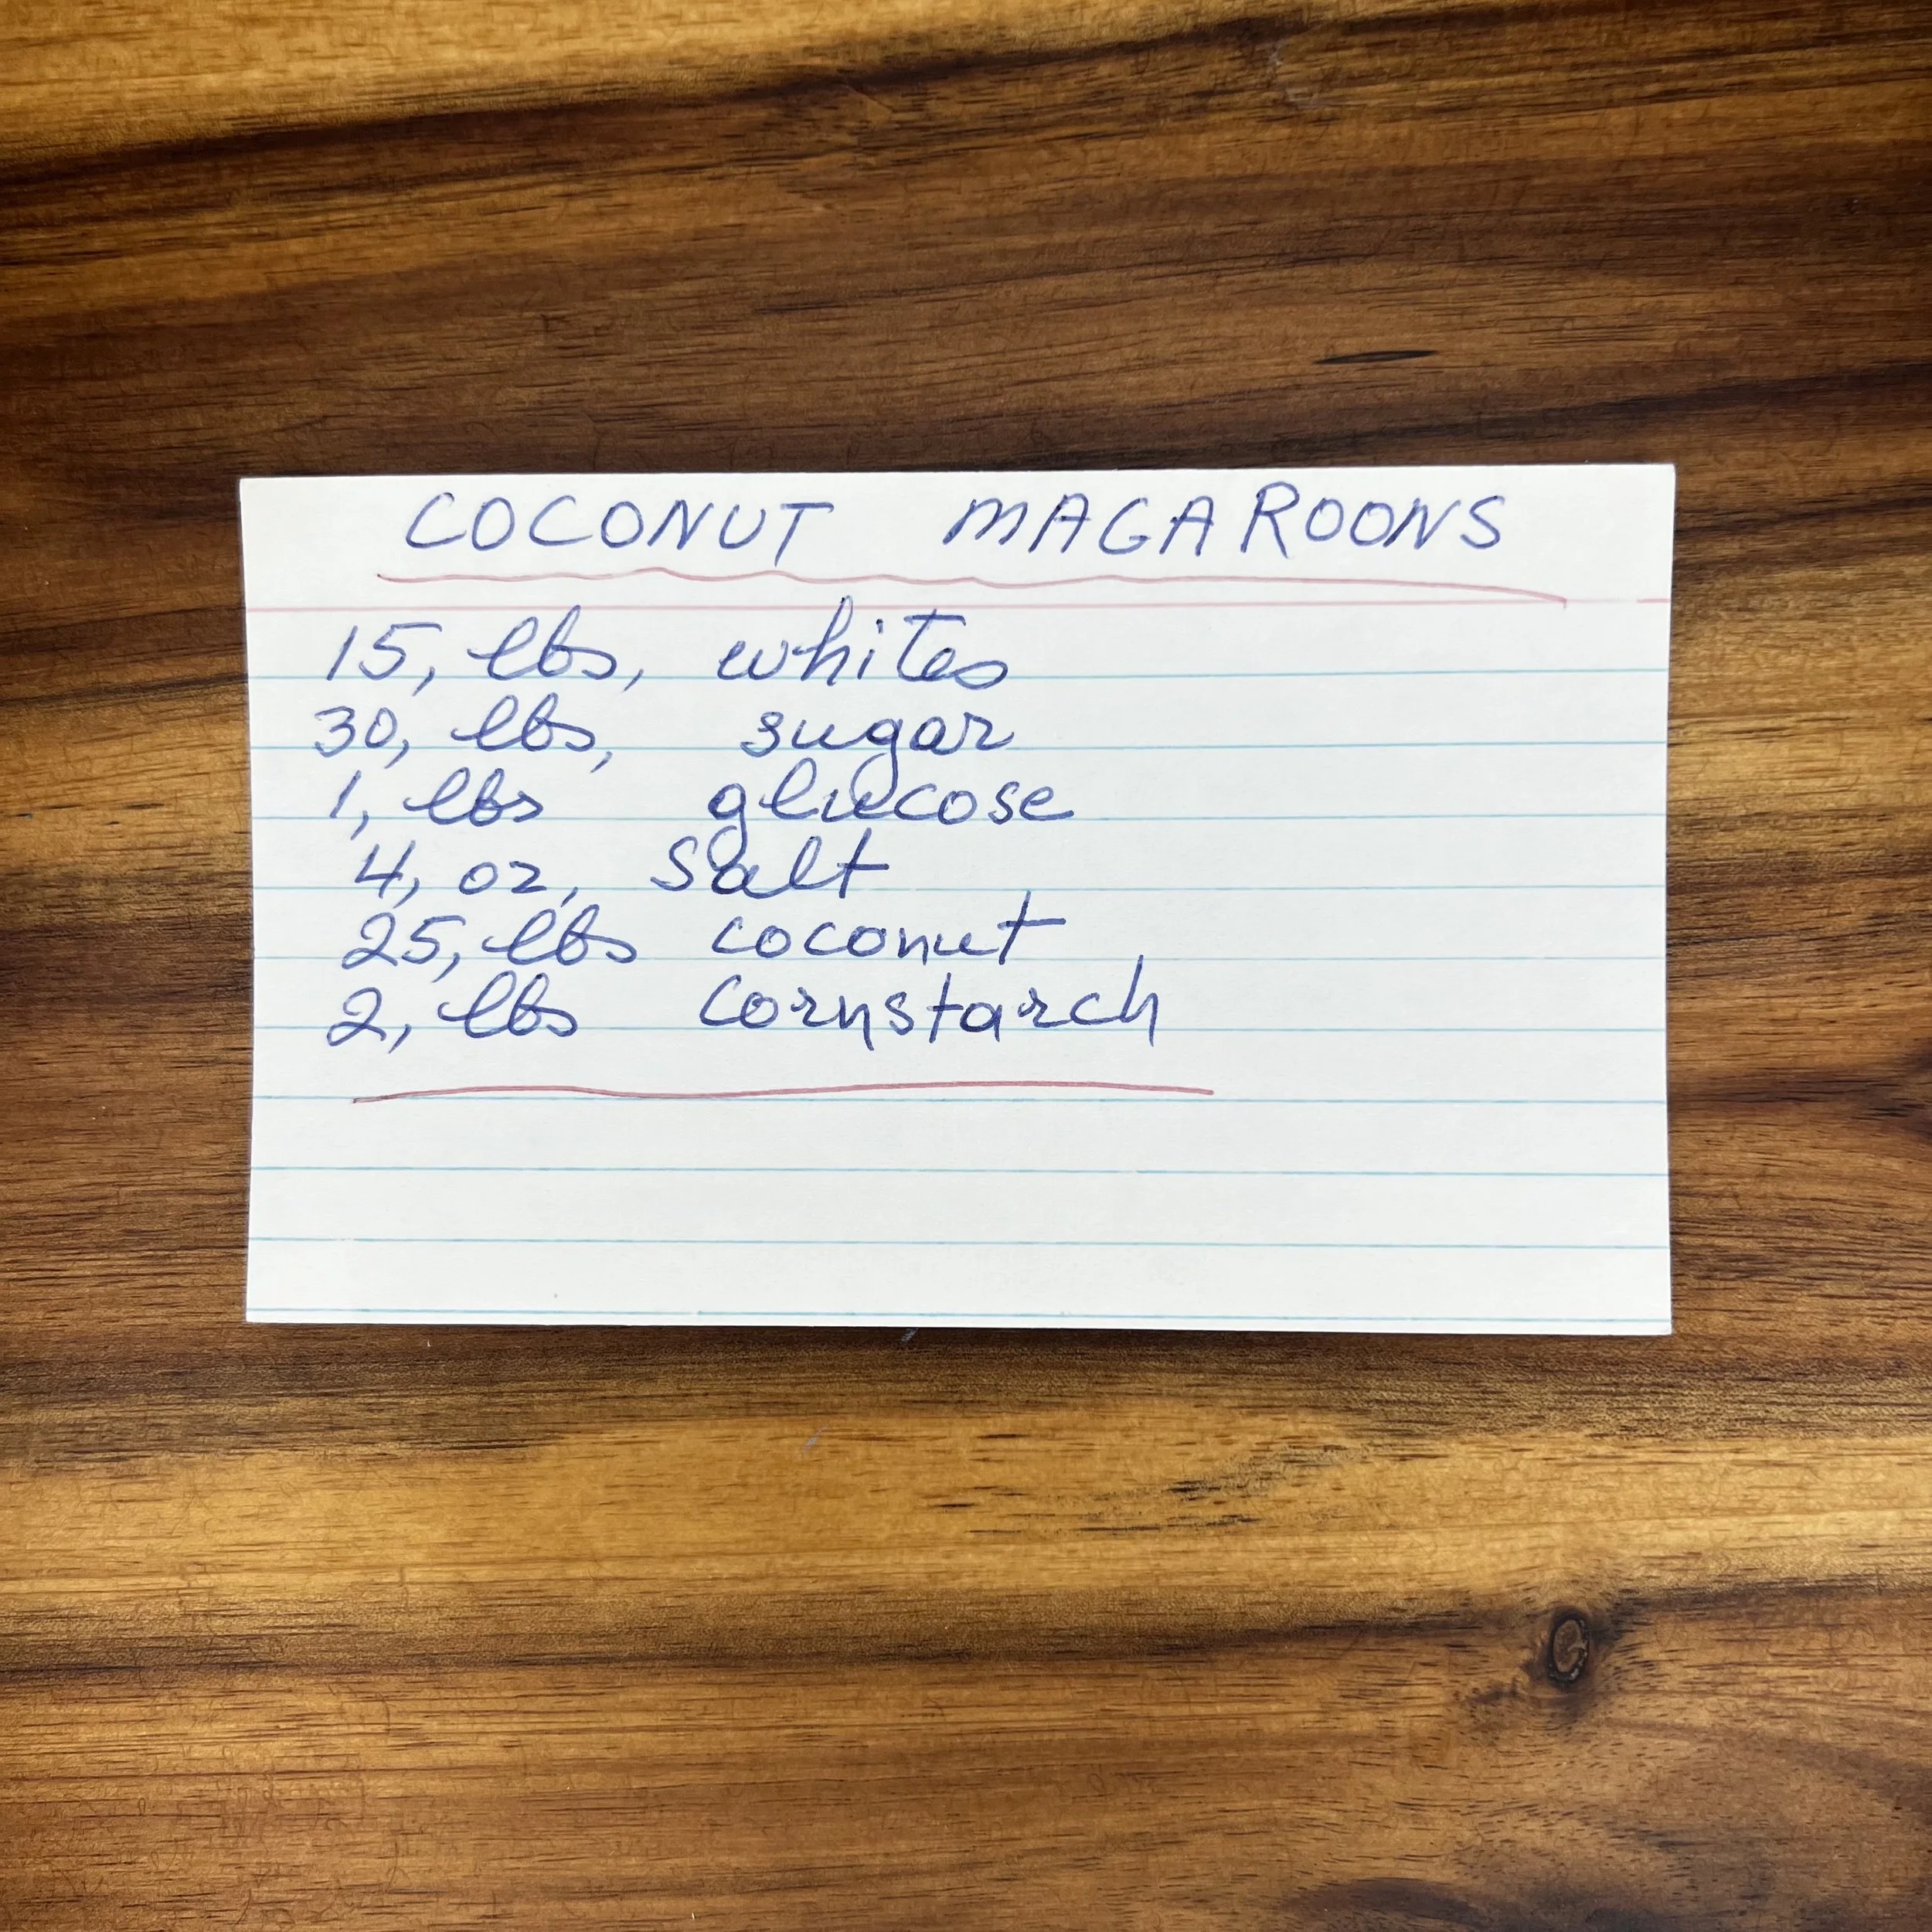 COCONUT MAGAROONS
15, lbs, whites
30, lbs, sugar
1, lbs glucose
4, oz, Salt
25, lbs coconut
2, lbs Cornstarch